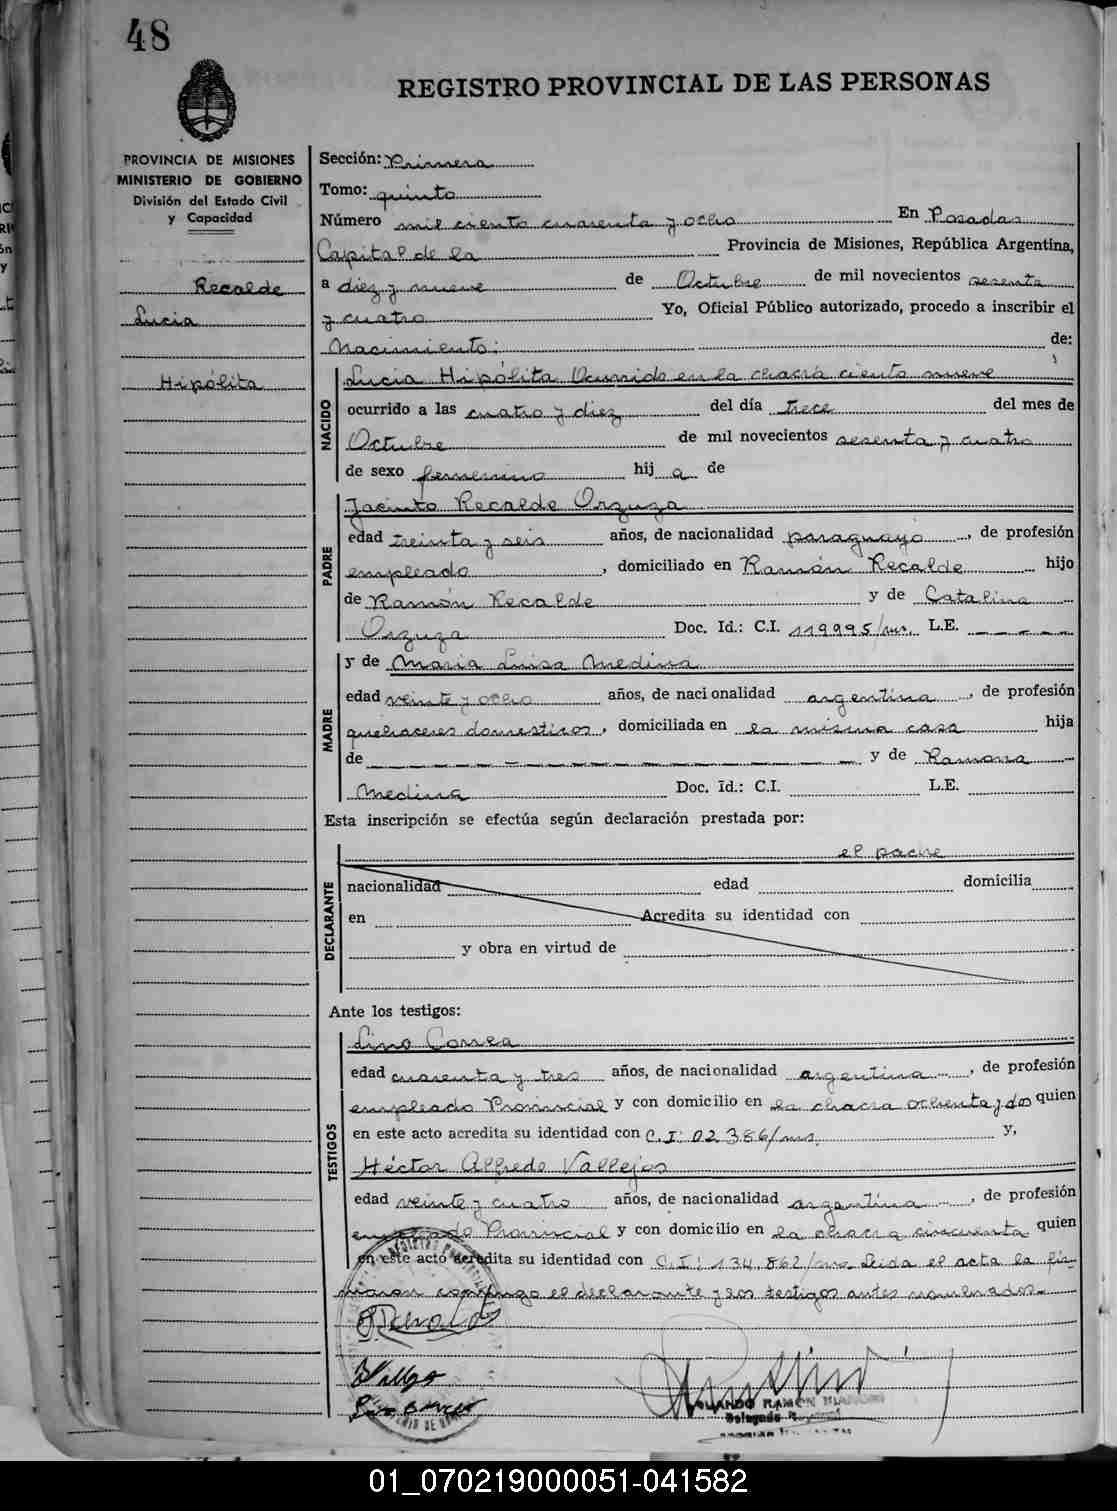 48
REGISTRO PROVINCIAL DE LAS PERSONAS
PROVINCIA DE MISIONES
MINISTERIO DE GOBIERNO
División del Estado Civil
y Capacidad
Recalde
Lucia
Hipólita
Sección: Primera
Tomo: quinto
Número mil ciento cuarenta y ocho En Posadas
Capital de la Provincia de Misiones, República Argentina,
a diez y nueve de Octubre de mil novecientos sesenta
y cuatro Yo, Oficial Público autorizado, procedo a inscribir el
Nacimiento: de:
NACIDO
Lucia Hipólita Ocurrido en la chacra ciento nueve
ocurrido a las cuatro y diez del día trece del mes de
Octubre de mil novecientos sesenta y cuatro
de sexo femenino hij a de
PADRE
Jacinto Recalde Orzuza
edad treinta y seis años, de nacionalidad paraguayo, de profesión
empleado, domiciliado en Ramón Recalde hijo
de Ramón Recalde y de Catalina
Orzuza Doc. Id.: C.I. 119995/ms. L.E. _ _ _ _ _
MADRE
y de Maria Luisa Medina
edad veinte y ocho años, de nacionalidad argentina, de profesión
quehaceres domesticos, domiciliada en la misma casa hija
de _ _ _ _ _ _ _ _ y de Ramona
Medina Doc. Id.: C.I. L.E.
Esta inscripción se efectúa según declaración prestada por:
DECLARANTE
el padre
nacionalidad edad domicilia
en Acredita su identidad con
y obra en virtud de
Ante los testigos:
TESTIGOS
Lino Correa
edad cuarenta y tres años, de nacionalidad argentina, de profesión
empleado Provincial y con domicilio en la chacra ochenta y dos quien
en este acto acredita su identidad con C.I: 02.386/ms. y,
Héctor Alfredo Vallejos
edad veinte y cuatro años, de nacionalidad argentina, de profesión
empleado Provincial y con domicilio en la chacra cincuenta quien
en este acto acredita su identidad con C.I: 134.862/ms. Leida el acta la fir-
maron conmigo el declarante y los testigos antes nombrados.
RAMON
Delegado
01_070219000051-041582